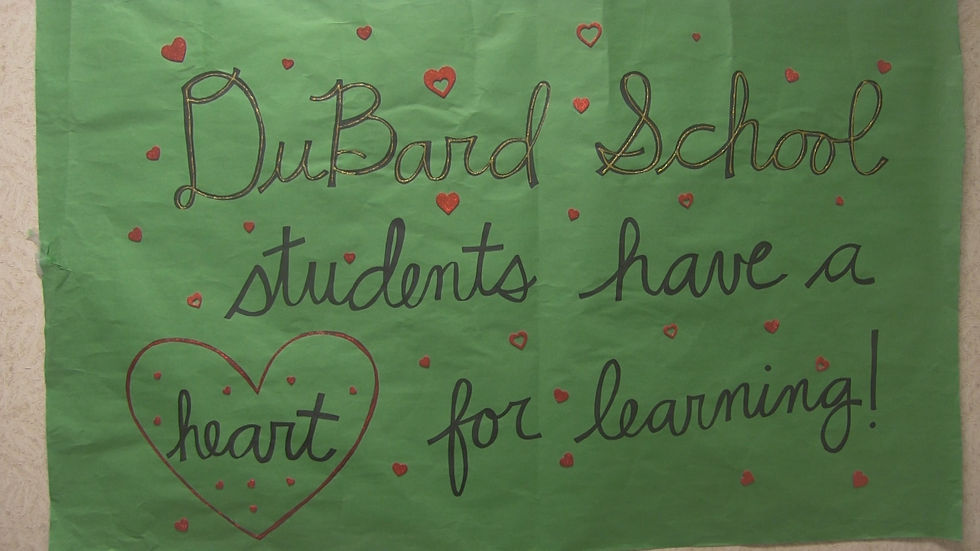 DuBard School
students have a
heart for learning!